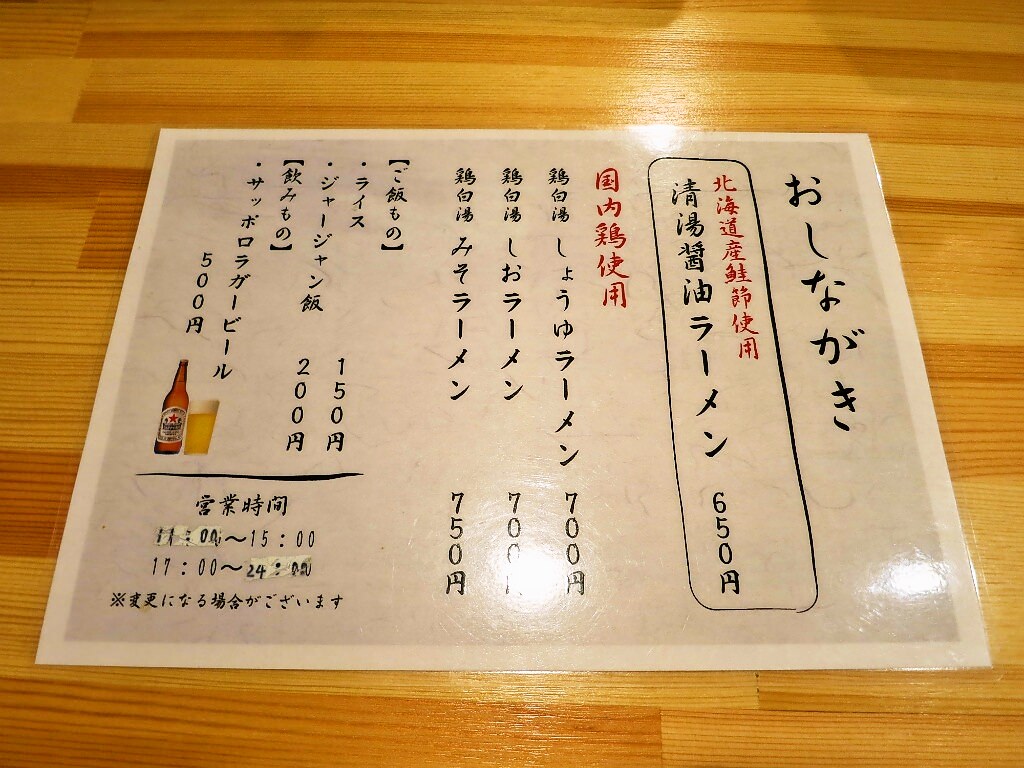 おしながき
北海道産鮭節使用
清湯醤油ラーメン 650円
国内鶏使用
鶏白湯 しょうゆラーメン 700円
鶏白湯 しおラーメン 700円
鶏白湯 みそラーメン 750円
【ご飯もの】
・ライス 150円
・ジャージャン飯 200円
【飲みもの】
・サッポロラガービール
500円
営業時間
11:00〜15:00
17:00〜24:00
※変更になる場合がございます